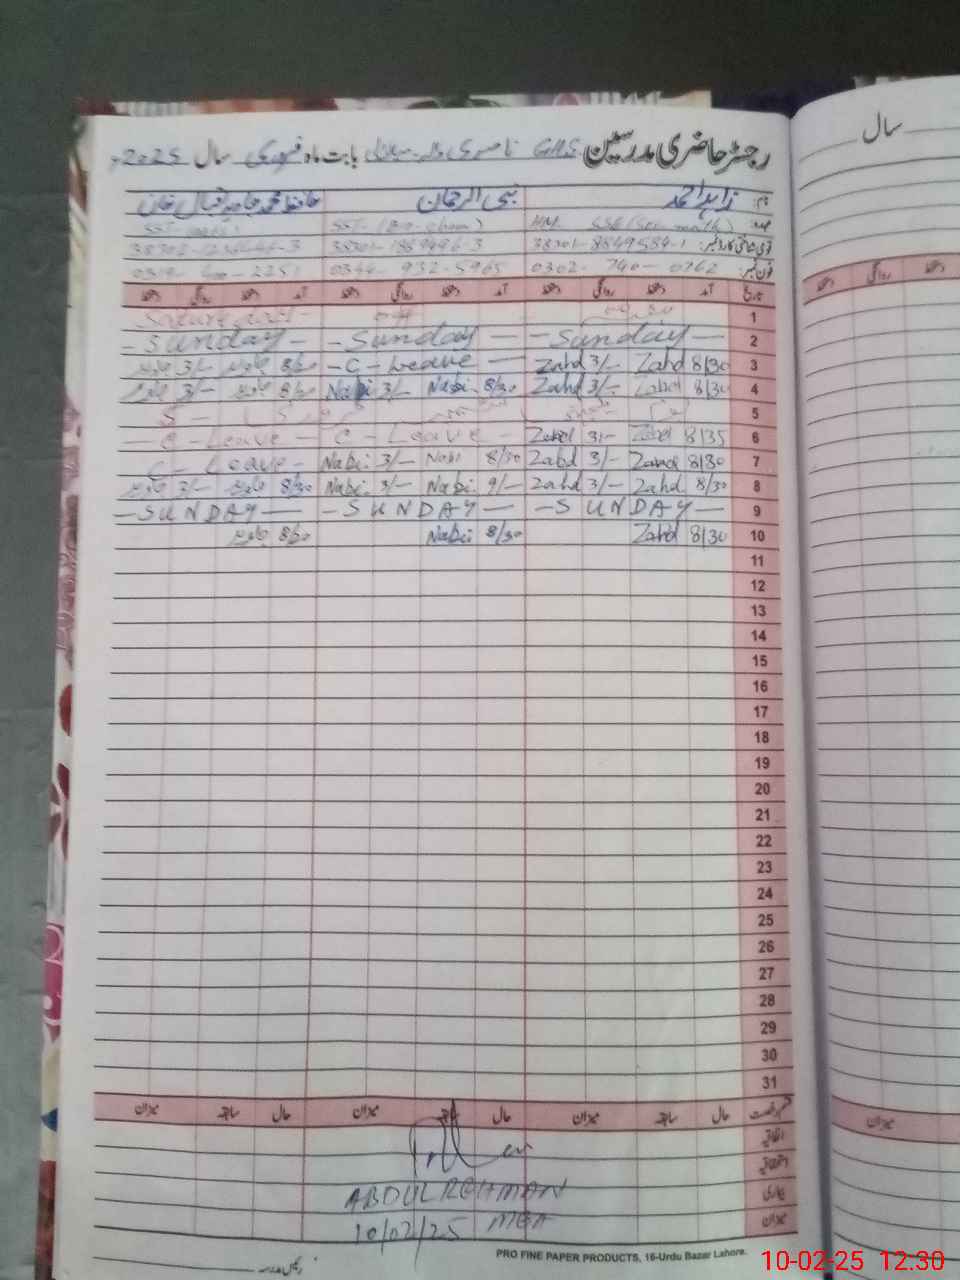 رجسٹر حاضری مدرسین GHS ناصری والہ بابت ماہ فروری سال 2025ء
سال
نام: زاہد احمد نبی الرحمان حافظ محمد جاوید اقبال خان
عہدہ: HM SSE (Sci math) SST (Bio-chem) SST
قومی شناختی کارڈ نمبر: 38301-8849584-1 38301-1869496-3
فون نمبر: 0302-740-0762 0344-932-5965
تاریخ آمد دستخط روانگی دستخط آمد دستخط روانگی دستخط آمد دستخط روانگی دستخط
1
2 - Sunday - - Sunday - - Sunday -
3 8/30 Zahd 3/- Zahd - C - Leave - 8/30 جاوید 3/- جاوید
4 8/30 Zahd 3/- Zahd 8/30 Nabi 3/- Nabi 8/30 جاوید 3/- جاوید
5
6 8/35 Zahd 3/- Zahd C - Leave - - C - Leave -
7 8/30 Zahd 3/- Zahd 8/30 Nabi 3/- Nabi C - Leave -
8 8/30 Zahd 3/- Zahd 9/- Nabi 3/- Nabi 8/30 جاوید 3/- جاوید
9 - SUNDAY - - SUNDAY - - SUNDAY -
10 8/30 Zahd 8/30 Nabi 8/30 جاوید
11
12
13
14
15
16
17
18
19
20
21
22
23
24
25
26
27
28
29
30
31
قسم رخصت حال سابقہ میزان حال سابقہ میزان حال سابقہ میزان
میزان
اتفاقیہ
استحقاقیہ
بیماری
ABDUL REHMAN
میزان
10/02/25 MEA
PRO FINE PAPER PRODUCTS, 16-Urdu Bazar Lahore.
رئیس مدرسہ
10-02-25 12.30